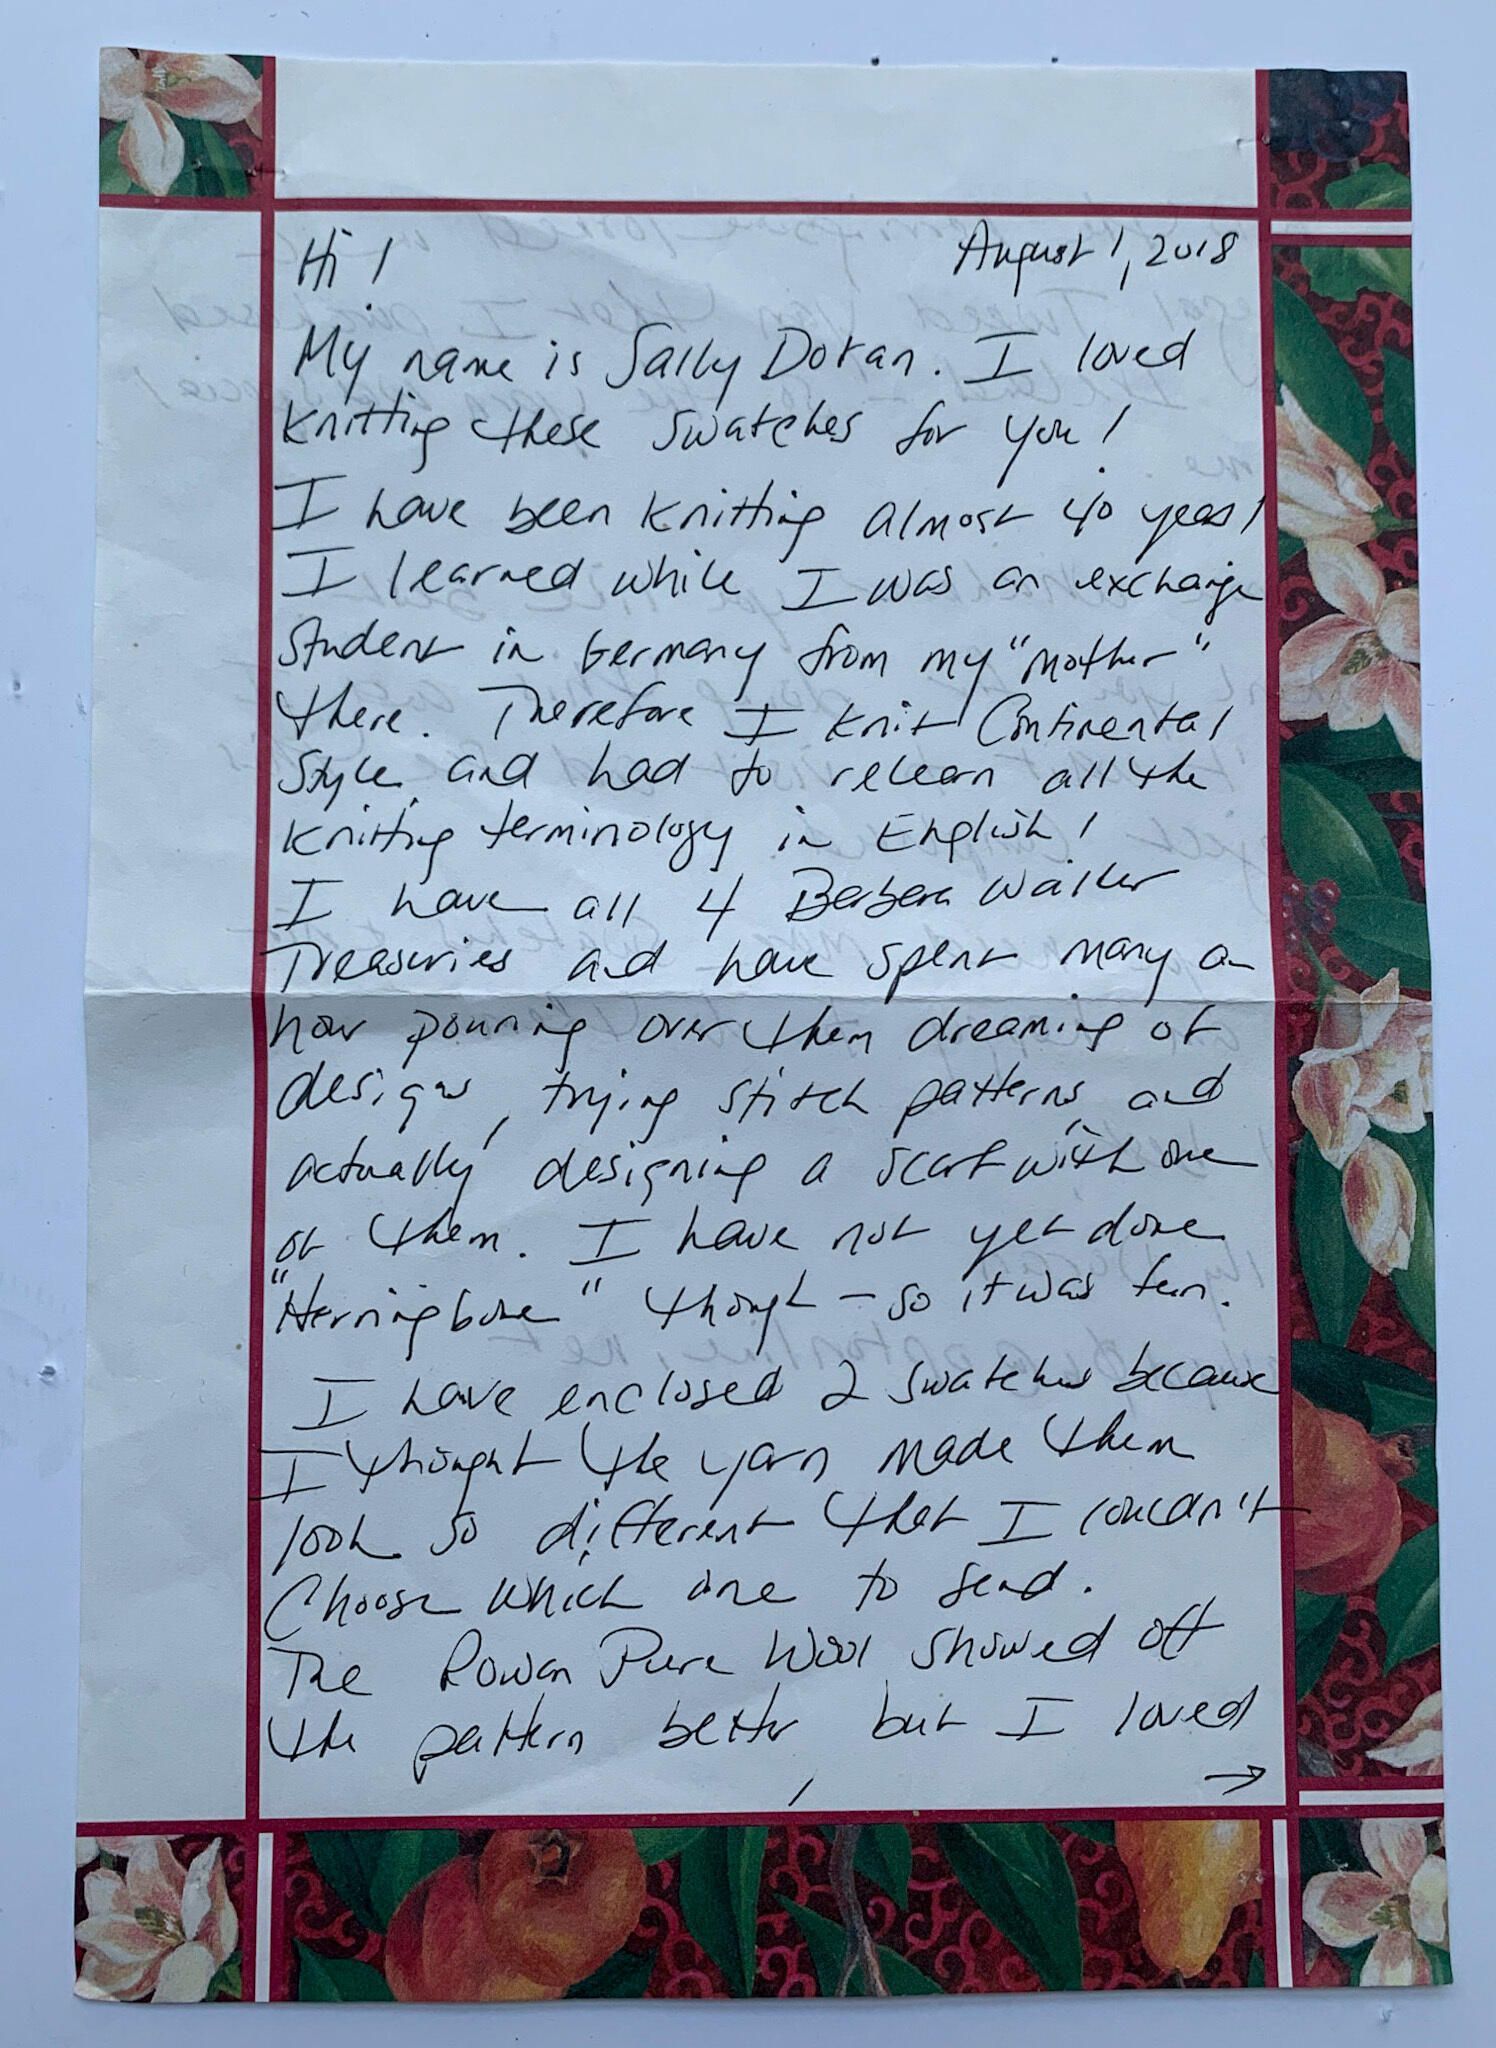 Hi!
August 1, 2018
My name is Sally Doran. I loved
knitting these swatches for you!
I have been knitting almost 40 years!
I learned while I was an exchange
student in Germany from my "mother"
there. Therefore I knit Continental
Style, and had to relearn all the
knitting terminology in English!
I have all 4 Barbara Walker
Treasuries and have spent many an
hour pouring over them dreaming of
designs, trying stitch patterns, and
actually designing a scarf with one
of them. I have not yet done
"Herringbone" though - so it was fun.
I have enclosed 2 swatches because
I thought the yarn made them
look so different that I couldn't
Choose which one to send.
The Rowan Pure Wool showed off
the pattern better but I loved
→